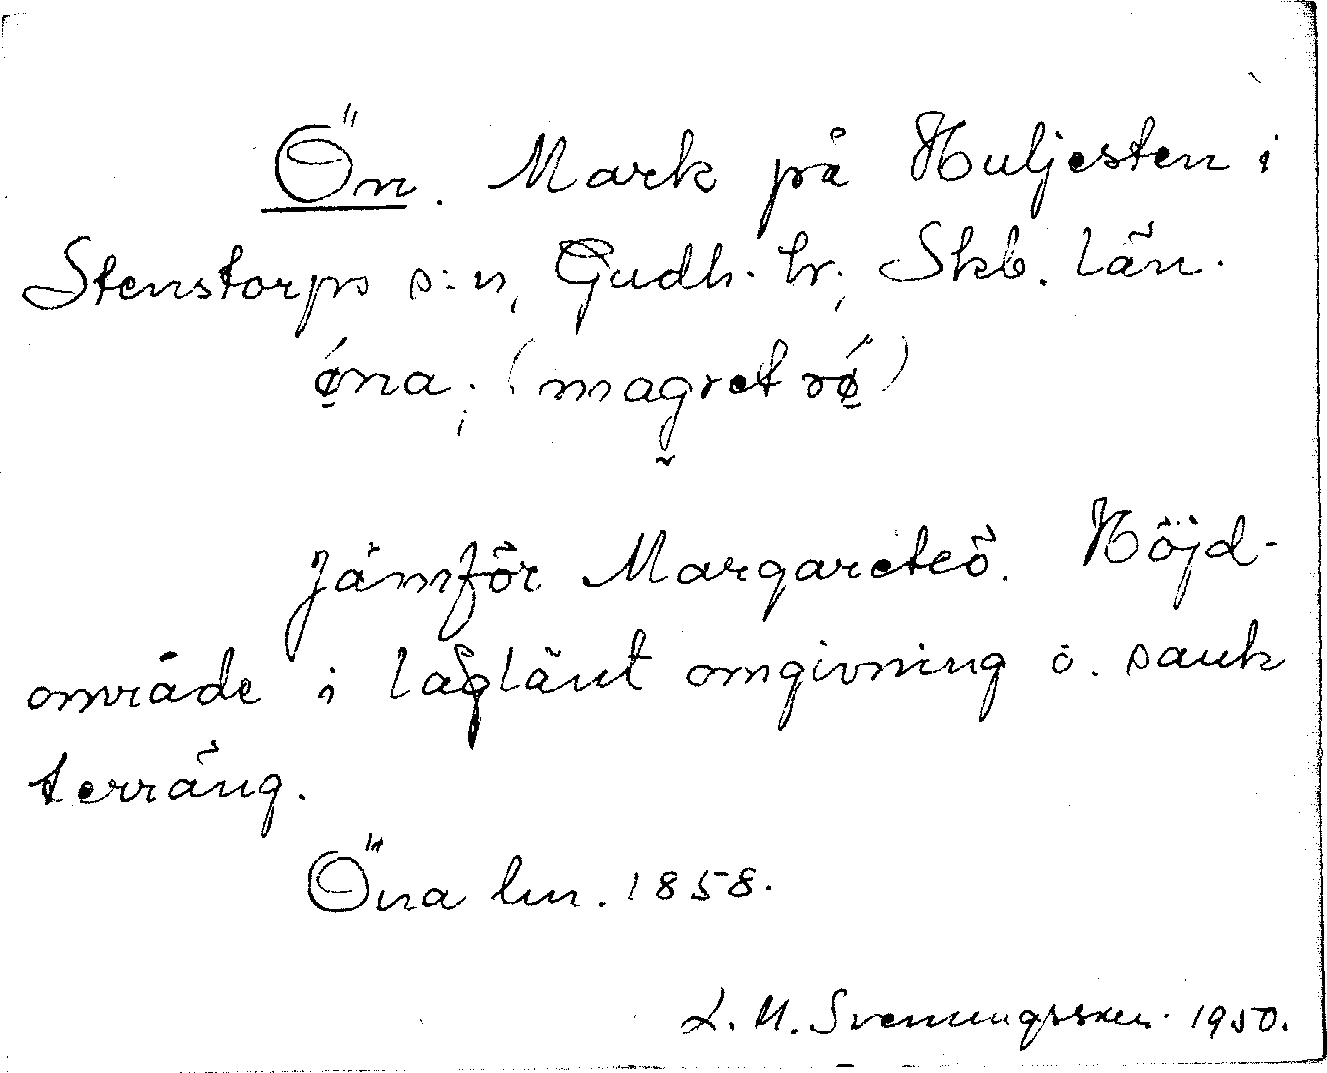 Ön. Mark på Huljesten i
Stenstorps s:n, Gudh. hr, Skb. län.
ǿna; (magret rǿ)
Jämför Margareteö. Höjd-
område i låglänt omgivning o. sank
terräng.
Öna lm. 1858.
L. M. Svenungsson. 1950.